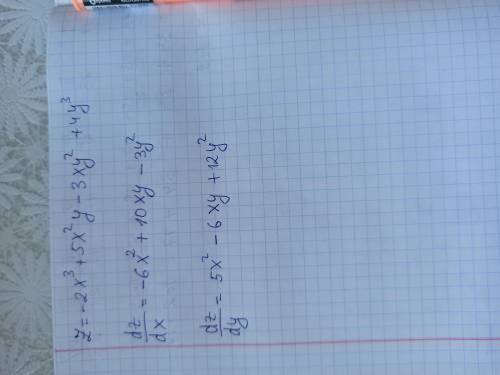 z = -2x³ + 5x²y - 3xy² + 4y³
dz/dx = -6x² + 10xy - 3y²
dz/dy = 5x² - 6xy + 12y²